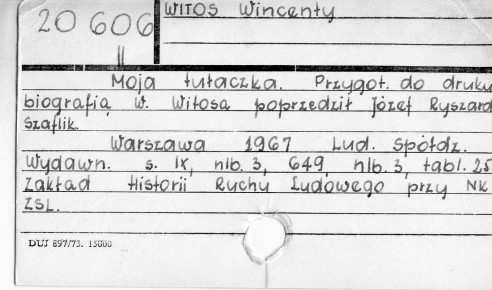 20 606
WITOS Wincenty
II
Moja tułaczka. Przygot. do druku
biografią W. Witosa poprzedził Józef Ryszard
Szaflik.
Warszawa 1967 Lud. Spółdz.
Wydawn. s. IX, nlb. 3, 649, nlb. 3, tabl. 25
Zakład Historii Ruchu Ludowego przy NK
ZSL.
DUJ 897/73. 15000